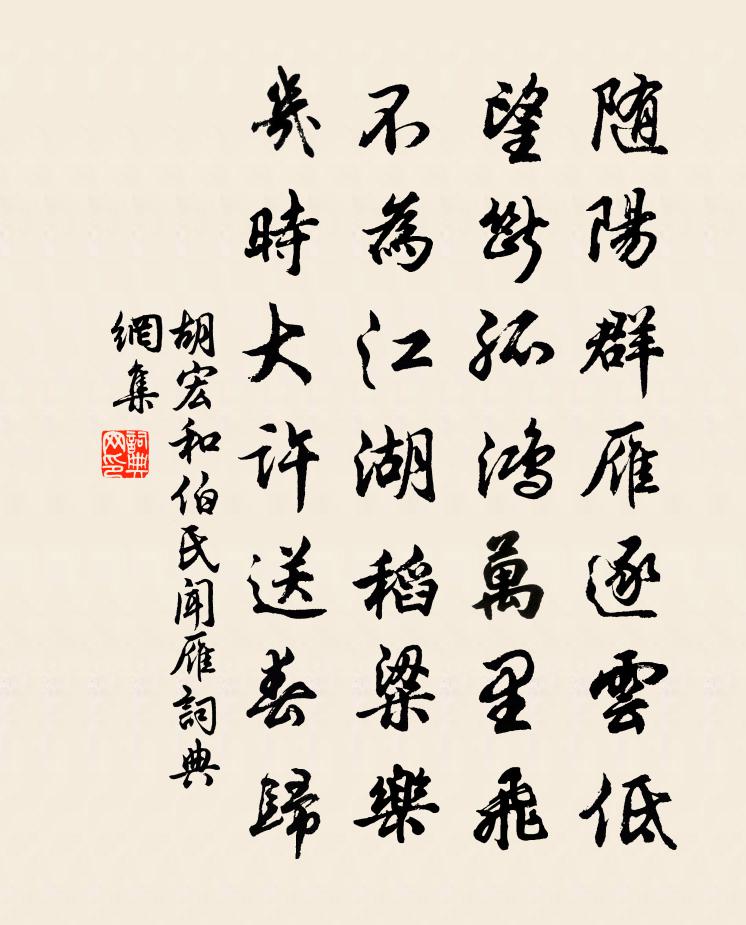 随陽群雁逐雲低
望斷孤鴻萬里飛
不為江湖稻粱樂
幾時大許送春歸
胡宏和伯氏聞雁詞典
網集
詞典
网印